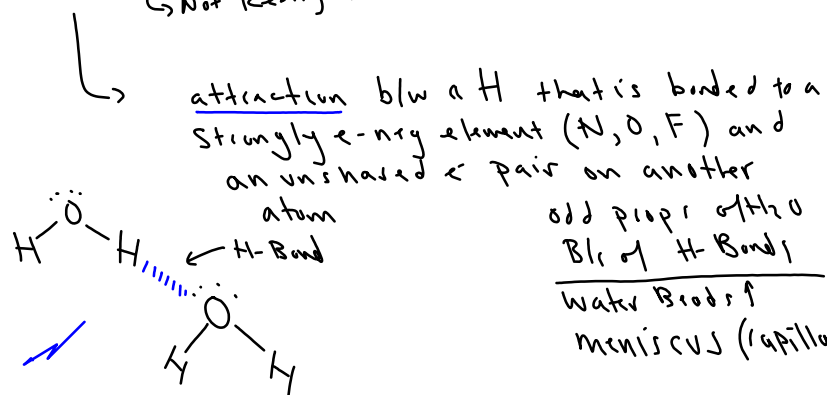 ↳ Not Really
attraction b/w a H that is bonded to a
strongly e-neg element (N, O, F) and
an unshared e⁻ pair on another
atom
odd props of H2O
B/c of H-Bonds
Water Beads↑
meniscus (capilla
H-Bond
O
H H
O
H H